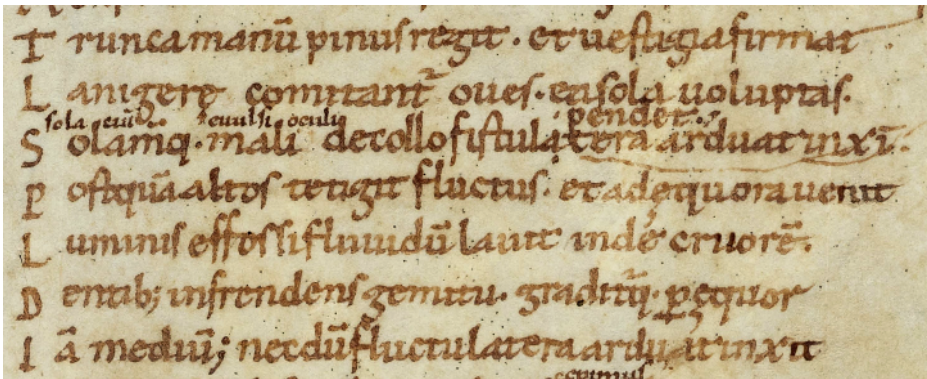 T runca manū pinus regit · et uestigia firmat
L anigerę comitant̄ oues · ea sola uoluptas.
sola eiū euulsi oculi pendet
S olamq; · mali de collo fistula latera ardua tinxī.
P ostquā altos tetigit fluctus · et ad equora uenit
L uminis effossi fluuidū lauit indé cruorē.
D entib; infrendens gemitu · graditq̄ · p̱ equor
I ā mediū; necdū fluctu latera ardua tinxit